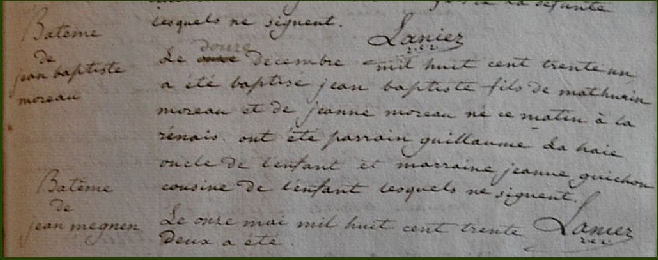 lesquels ne signent.
Lanier
rec
Batême
de
jean baptiste
moreau
Le douze decembre mil huit cent trente un
a été baptisé jean baptiste fils de mathurin
moreau et de jeanne moreau né ce matin à la
rénais. ont été parrain guillaume La haie
oncle de l'enfant et marraine jeanne guichon
cousine de l'enfant lesquels ne signent.
Lanier
rec
Batême
de
jean megnen
Le onze mai mil huit cent trente
deux a été